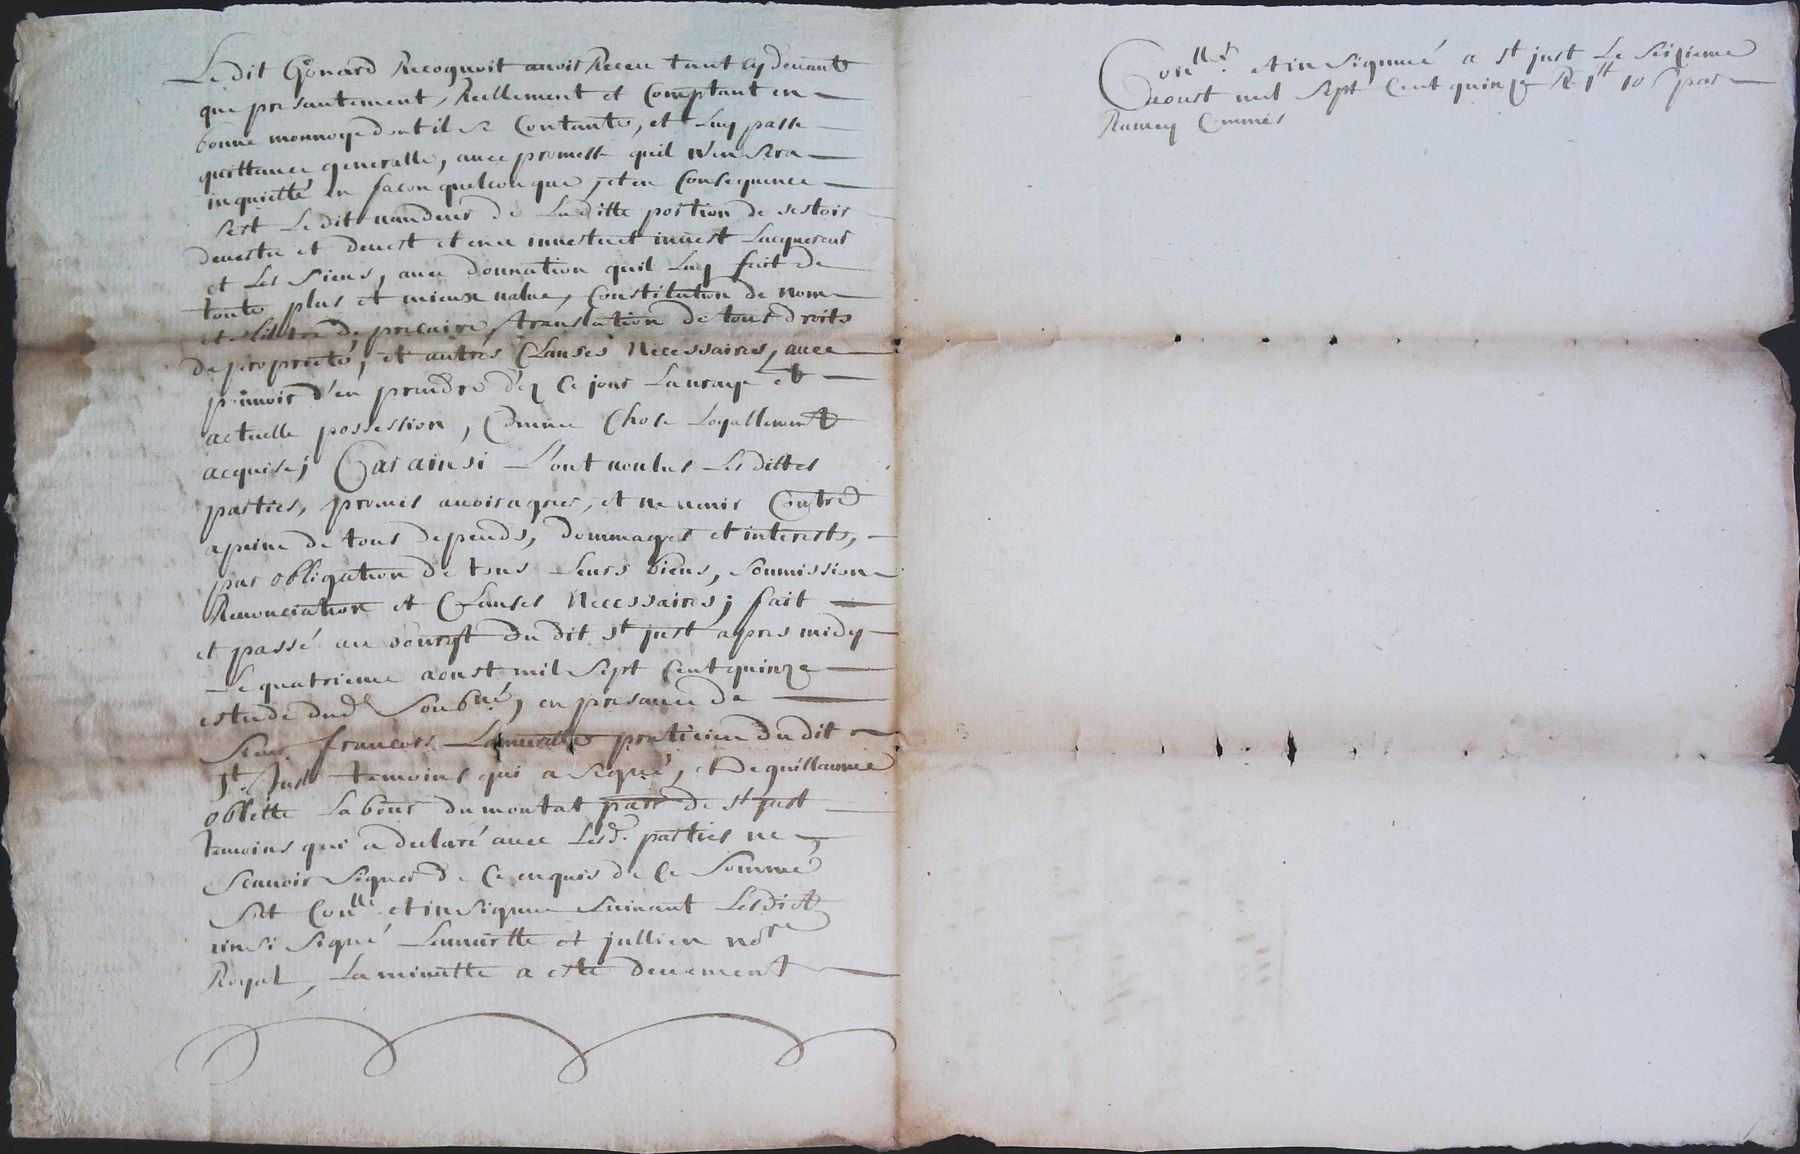 Le dit Gonard Recognoit auoir Receu tant cy deuant
que presantement, Reellement et Comptant en
bonne monnoye dont il se Contante, et luy passe
quittance generalle, auec promesse quil n'en sera
inquietté en facon quelconque, et en Consequence
sest Le dit vandeur de Laditte portion de sestois
deuestu et deuest et en a inuestu et inuest Lacquereur
et Les siens, auec donnation quil luy fait de
toute plus et mieux value, Constitution de nom
et tiltre de precaire, translation de tous droits
de proprieté, et autres Clauses Necessaires, auec
pouuoir d'en prandre dez Ce jour La uraye et
actuelle possession, Comme Chose Loyallement
acquise; Car ainsi L'ont voulus Les dittes
parties, promis auoir agreé, et ne venir Contre
a peine de tous depends, dommages et interests,
par obligation de tous leurs biens, soumission
Renonciation et Clauses Necessaires; fait
et passé au bourgt du dit st just apres midy
Le quatrieme aoust mil sept Cent quinze
estude dud soubné, en presance de
sieur francois praticien du dit
st. Just temoins qui a signé, et De guillaume
oblette Labour du montat parr de st just
temoins qui a declaré auec Lesd. parties ne
scauoir signer de Ce enquis de Ce sommé
set Conlle et insignue suiuant Lesdict
ainsi signé et jullien nore
Royal, La minutte a esté deuement
Conllé et insignué a st just Le seizieme
aoust mil sept Cent quinze R 1tt 10 s par
Ramey Commis